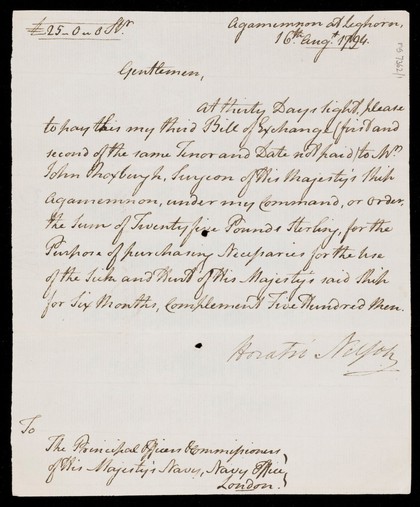 £25-0-0 Str
Agamemnon at Leghorn,
16th Augt. 1794.
PB 7362/1
Gentlemen,
At thirty Days sight, please
to pay this my third Bill of Exchange (first and
second of the same Tenor and Date not paid) to Mr.
John Roxburgh, Surgeon of His Majesty's Ship
Agamemnon, under my Command, or order,
the Sum of Twenty five Pounds Sterling, for the
Purpose of purchasing Necessaries for the Use
of the Sick and Hurt of His Majesty's said Ship
for Six Months, Complement Five Hundred Men.
Horatio Nelson
To
The Principal Officers & Commissioners
of His Majesty's Navy, Navy Office,
London.